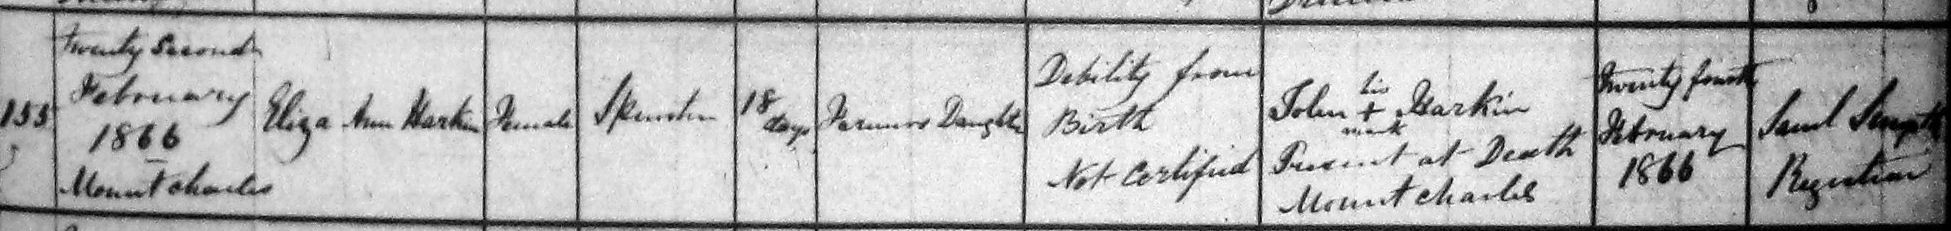 155
Twenty Second
February
1866
Mountcharles
Eliza Ann Harkin
Female
Spinster
18
days
Farmers Daughter
Debility from
Birth
Not Certified
John his + mark Harkin
Present at Death
Mountcharles
Twenty fourth
February
1866
Saml
Registrar